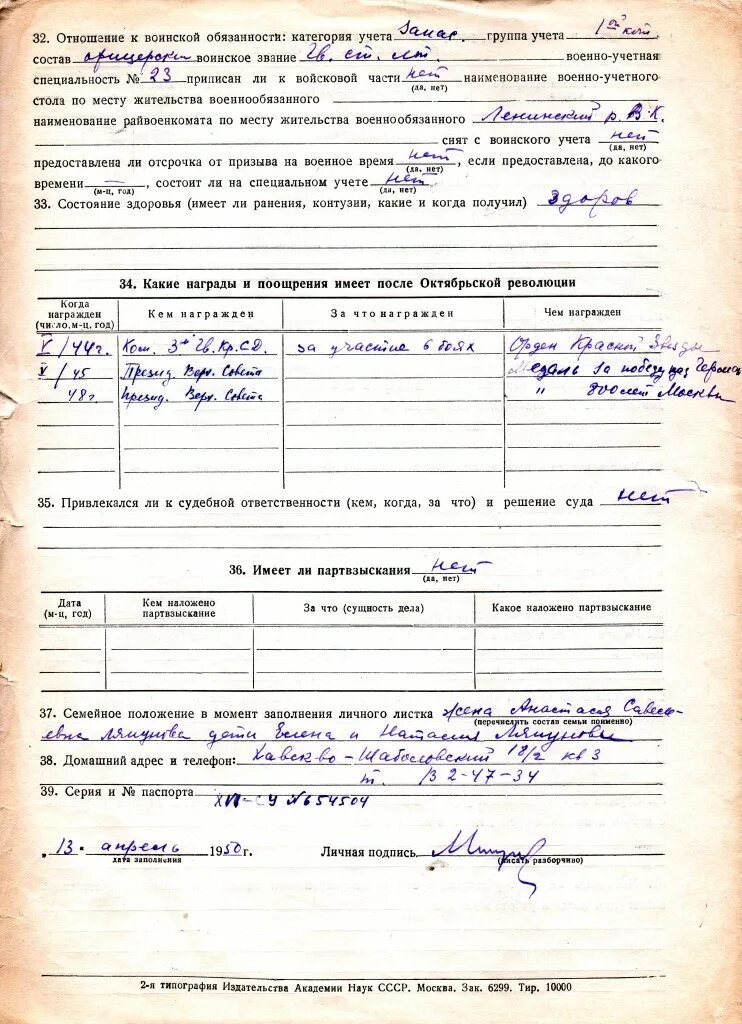 32. Отношение к воинской обязанности: категория учета запас. группа учета 1ой кат.
состав офицерский воинское звание Гв. ст. л-т. военно-учетная
специальность № 23 приписан ли к войсковой части нет наименование военно-учетного
(да, нет)
стола по месту жительства военнообязанного
наименование райвоенкомата по месту жительства военнообязанного Ленинский р.В.К.
снят с воинского учета нет
(да, нет)
предоставлена ли отсрочка от призыва на военное время нет, если предоставлена, до какого
(да, нет)
времени —, состоит ли на специальном учете нет
(м-ц, год) (да, нет)
33. Состояние здоровья (имеет ли ранения, контузии, какие и когда получил) здоров
34. Какие награды и поощрения имеет после Октябрьской революции
Когда награжден (число, м-ц, год) Кем награжден За что награжден Чем награжден
V/44г. Ком. 3ей Гв. Кр. С.Д. за участие в боях Орден Красной Звезды
V/45 Презид. Верх. Совета Медаль за победу над Герман
48г. Презид. Верх. Совета " 800 лет Москвы
35. Привлекался ли к судебной ответственности (кем, когда, за что) и решение суда нет
36. Имеет ли партвзыскания нет
(да, нет)
Дата (м-ц, год) Кем наложено партвзыскание За что (сущность дела) Какое наложено партвзыскание
37. Семейное положение в момент заполнения личного листка жена Анастасия Савель-
(перечислить состав семьи поименно)
евна Ляпунова дети Елена и Наталия Ляпуновы
38. Домашний адрес и телефон: Хавско-Шаболовский 18/2 кв 3
т. В 2-47-34
39. Серия и № паспорта -СУ № 654504
„13" апрель 1950 г. Личная подпись
дата заполнения (писать разборчиво)
2-я типография Издательства Академии Наук СССР. Москва. Зак. 6299. Тир. 10000